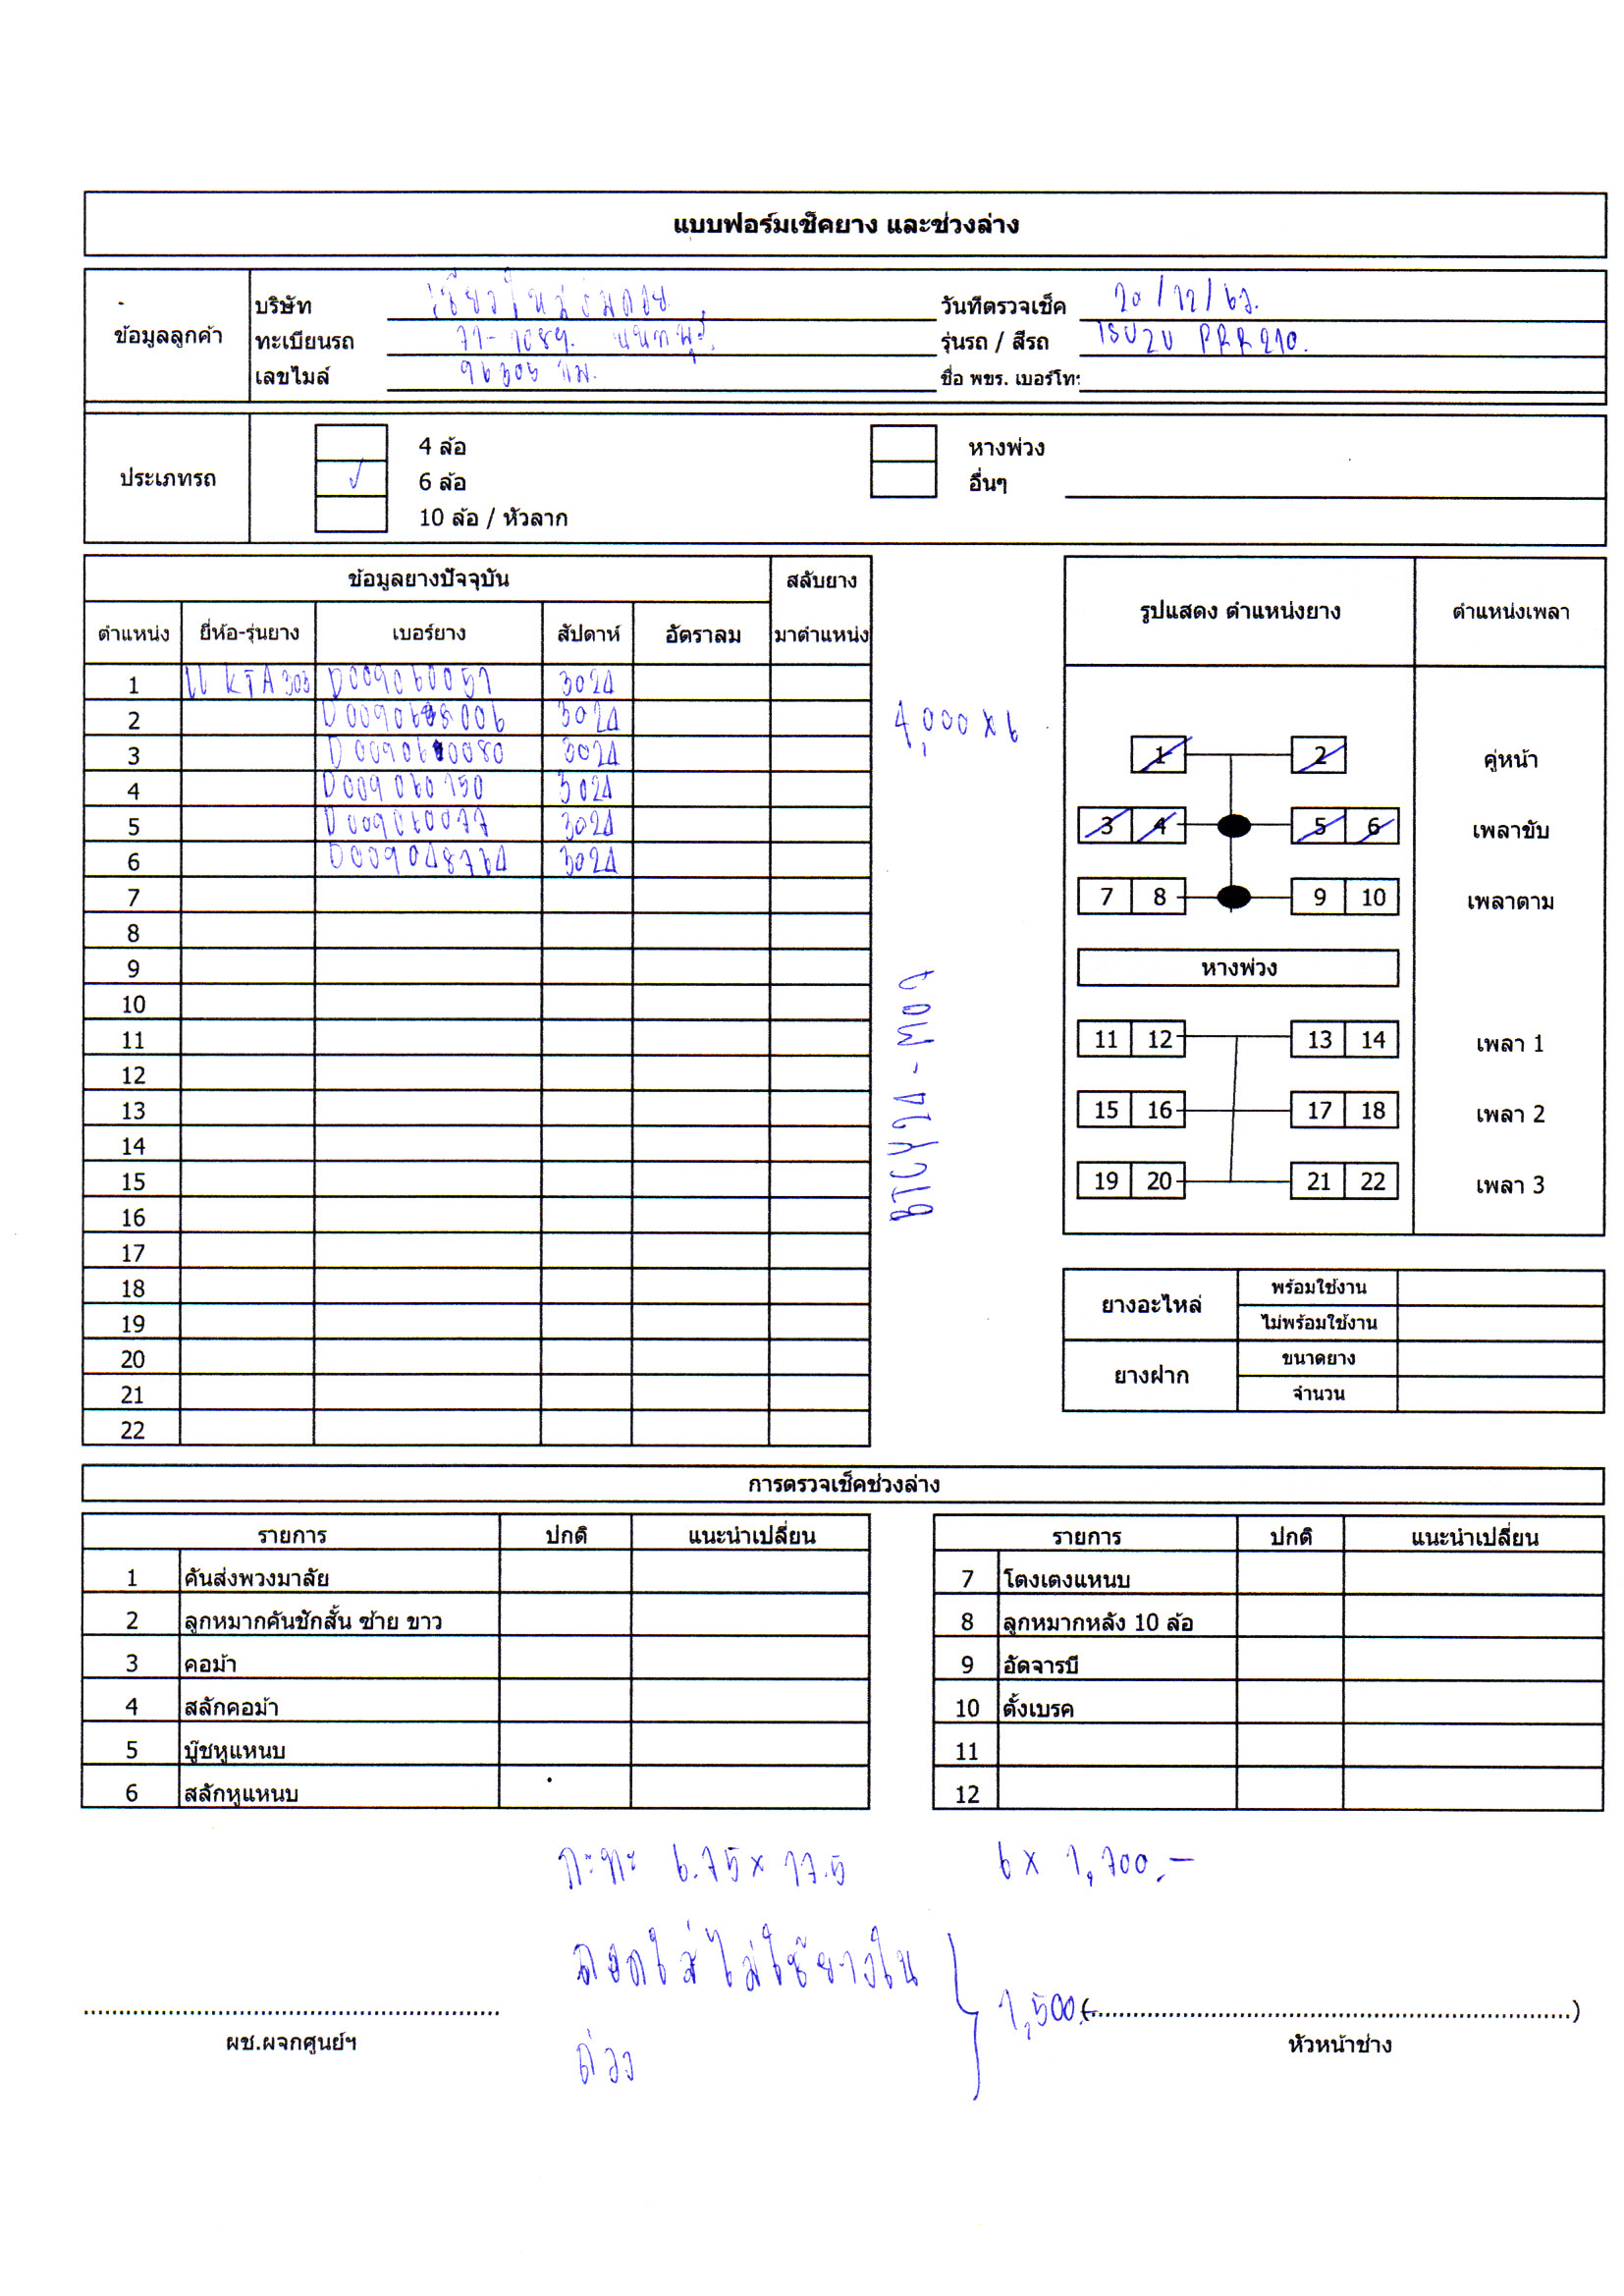 แบบฟอร์มเช็คยาง และช่วงล่าง
ข้อมูลลูกค้า
บริษัท เชียงใหม่ริมดอย วันที่ตรวจเช็ค 20/12/67.
ทะเบียนรถ 71-1089. นนทบุรี รุ่นรถ / สีรถ ISUZU FRR210.
เลขไมล์ 96305 กม. ชื่อ พขร. เบอร์โทร
ประเภทรถ
4 ล้อ หางพ่วง
✓ 6 ล้อ อื่นๆ
10 ล้อ / หัวลาก
ข้อมูลยางปัจจุบัน สลับยาง
ตำแหน่ง ยี่ห้อ-รุ่นยาง เบอร์ยาง สัปดาห์ อัตราลม มาตำแหน่ง
1 KTA303 D009060051 3024
2 3024
3 3024
4 D009060150 3024
5 D009060077 3024
6 D009048764 3024
7
8
9
10
11
12
13
14
15
16
17
18
19
20
21
22
4,000 x 6
BTCY24-M07
รูปแสดง ตำแหน่งยาง ตำแหน่งเพลา
1 2 คู่หน้า
3 4 5 6 เพลาขับ
7 8 9 10 เพลาตาม
หางพ่วง
11 12 13 14 เพลา 1
15 16 17 18 เพลา 2
19 20 21 22 เพลา 3
ยางอะไหล่ พร้อมใช้งาน
ไม่พร้อมใช้งาน
ยางฝาก ขนาดยาง
จำนวน
การตรวจเช็คช่วงล่าง
รายการ ปกติ แนะนำเปลี่ยน
1 คันส่งพวงมาลัย
2 ลูกหมากคันชักสั้น ซ้าย ขาว
3 คอม้า
4 สลักคอม้า
5 บู๊ชหูแหนบ
6 สลักหูแหนบ
รายการ ปกติ แนะนำเปลี่ยน
7 โตงเตงแหนบ
8 ลูกหมากหลัง 10 ล้อ
9 อัดจารบี
10 ตั้งเบรค
11
12
กะทะ 6.75 x 17.5 6 x 1,700.-
ถอดใส่ไม่ใช้ยางใน
ถ่วง
1,500.-
ผช.ผจกศูนย์ฯ
(....................)
หัวหน้าช่าง